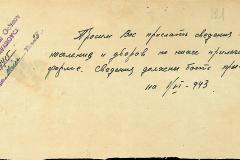 181
Просим Вас прислать сведения
населения и дворов по ниже прилага
форме. Сведения должны быть пре
на 1/VI-943